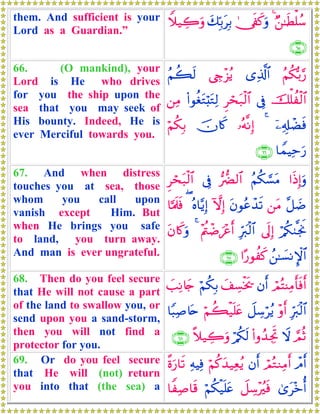 them. And sufficient is your
Lord as a Guardian.”
سُلْطَٰنٌ ۚ وَكَفَىٰ بِرَبِّكَ وَكِيلًا
٦٥
66. (O mankind), your
Lord is He who drives
for you the ship upon the
sea that you may seek of
His bounty. Indeed, He is
ever Merciful towards you.
رَّبُّكُمُ ٱلَّذِى يُزْجِى لَكُمُ
ٱلْفُلْكَ فِى ٱلْبَحْرِ لِتَبْتَغُوا۟ مِن
فَضْلِهِۦٓ ۚ إِنَّهُۥ كَانَ بِكُمْ
رَحِيمًا ٦٦
67. And when distress
touches you at sea, those
whom you call upon
vanish except Him. But
when He brings you safe
to land, you turn away.
And man is ever ungrateful.
وَإِذَا مَسَّكُمُ ٱلضُّرُّ فِى ٱلْبَحْرِ
ضَلَّ مَن تَدْعُونَ إِلَّآ إِيَّاهُ ۖ فَلَمَّا
نَجَّىٰكُمْ إِلَى ٱلْبَرِّ أَعْرَضْتُمْ ۚ وَكَانَ
ٱلْإِنسَٰنُ كَفُورًا ٦٧
68. Then do you feel secure
that He will not cause a part
of the land to swallow you, or
send upon you a sand-storm,
then you will not find a
protector for you.
أَفَأَمِنتُمْ أَن يَخْسِفَ بِكُمْ جَانِبَ
ٱلْبَرِّ أَوْ يُرْسِلَ عَلَيْكُمْ حَاصِبًا
ثُمَّ لَا تَجِدُوا۟ لَكُمْ وَكِيلًا ٦٨
69. Or do you feel secure
that He will (not) return
you into that (the sea) a
أَمْ أَمِنتُمْ أَن يُعِيدَكُمْ فِيهِ تَارَةً
أُخْرَىٰ فَيُرْسِلَ عَلَيْكُمْ قَاصِفًا